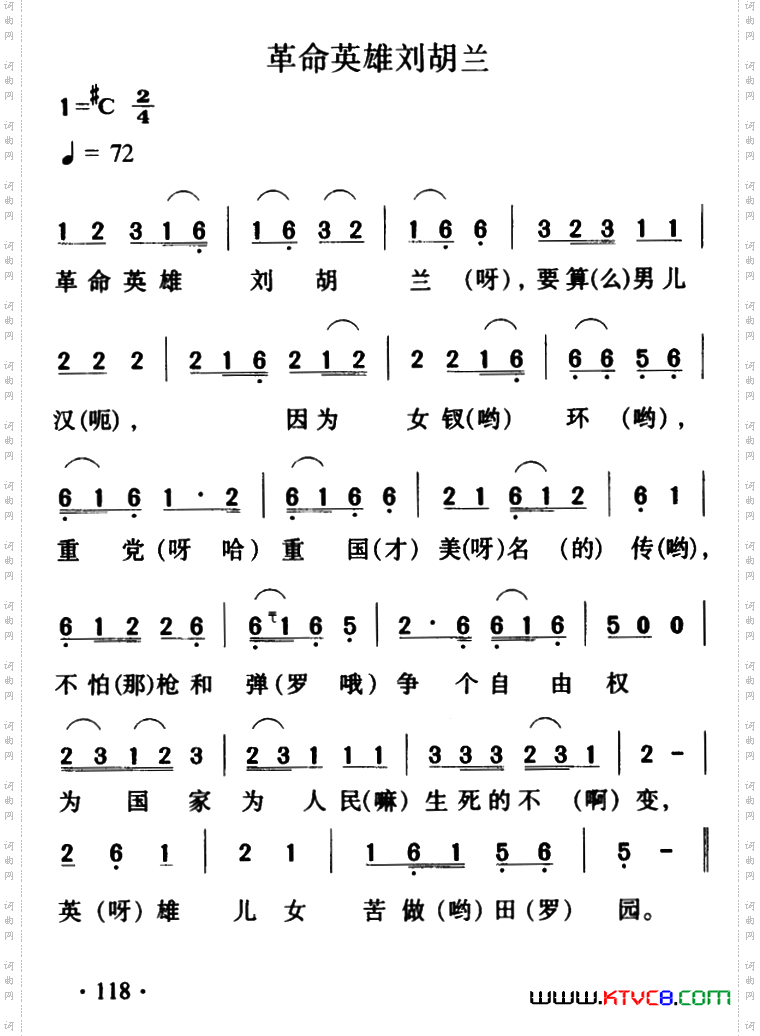 革命英雄刘胡兰
1=#C 2/4
♩= 72
1 2 3 1 6 | 1 6 3 2 | 1 6 6 | 3 2 3 1 1 |
革 命 英 雄 刘 胡 兰 (呀), 要 算(么)男 儿
2 2 2 | 2 1 6 2 1 2 | 2 2 1 6 | 6 6 5 6 |
汉(呃), 因 为 女 钗(哟) 环 (哟),
6 1 6 1 · 2 | 6 1 6 6 | 2 1 6 1 2 | 6 1 |
重 党(呀 哈) 重 国(才) 美(呀)名 (的) 传(哟),
6 1 2 2 6 | 6 1 6 5 | 2 · 6 6 1 6 | 5 0 0 |
不 怕(那)枪 和 弹(罗 哦) 争 个 自 由 权
2 3 1 2 3 | 2 3 1 1 1 | 3 3 3 2 3 1 | 2 - |
为 国 家 为 人 民(嘛) 生 死 的 不 (啊) 变,
2 6 1 | 2 1 | 1 6 1 5 6 | 5 - ‖
英 (呀) 雄 儿 女 苦 做(哟)田(罗) 园。
· 118 ·
www.KTVC8.COM
词曲网